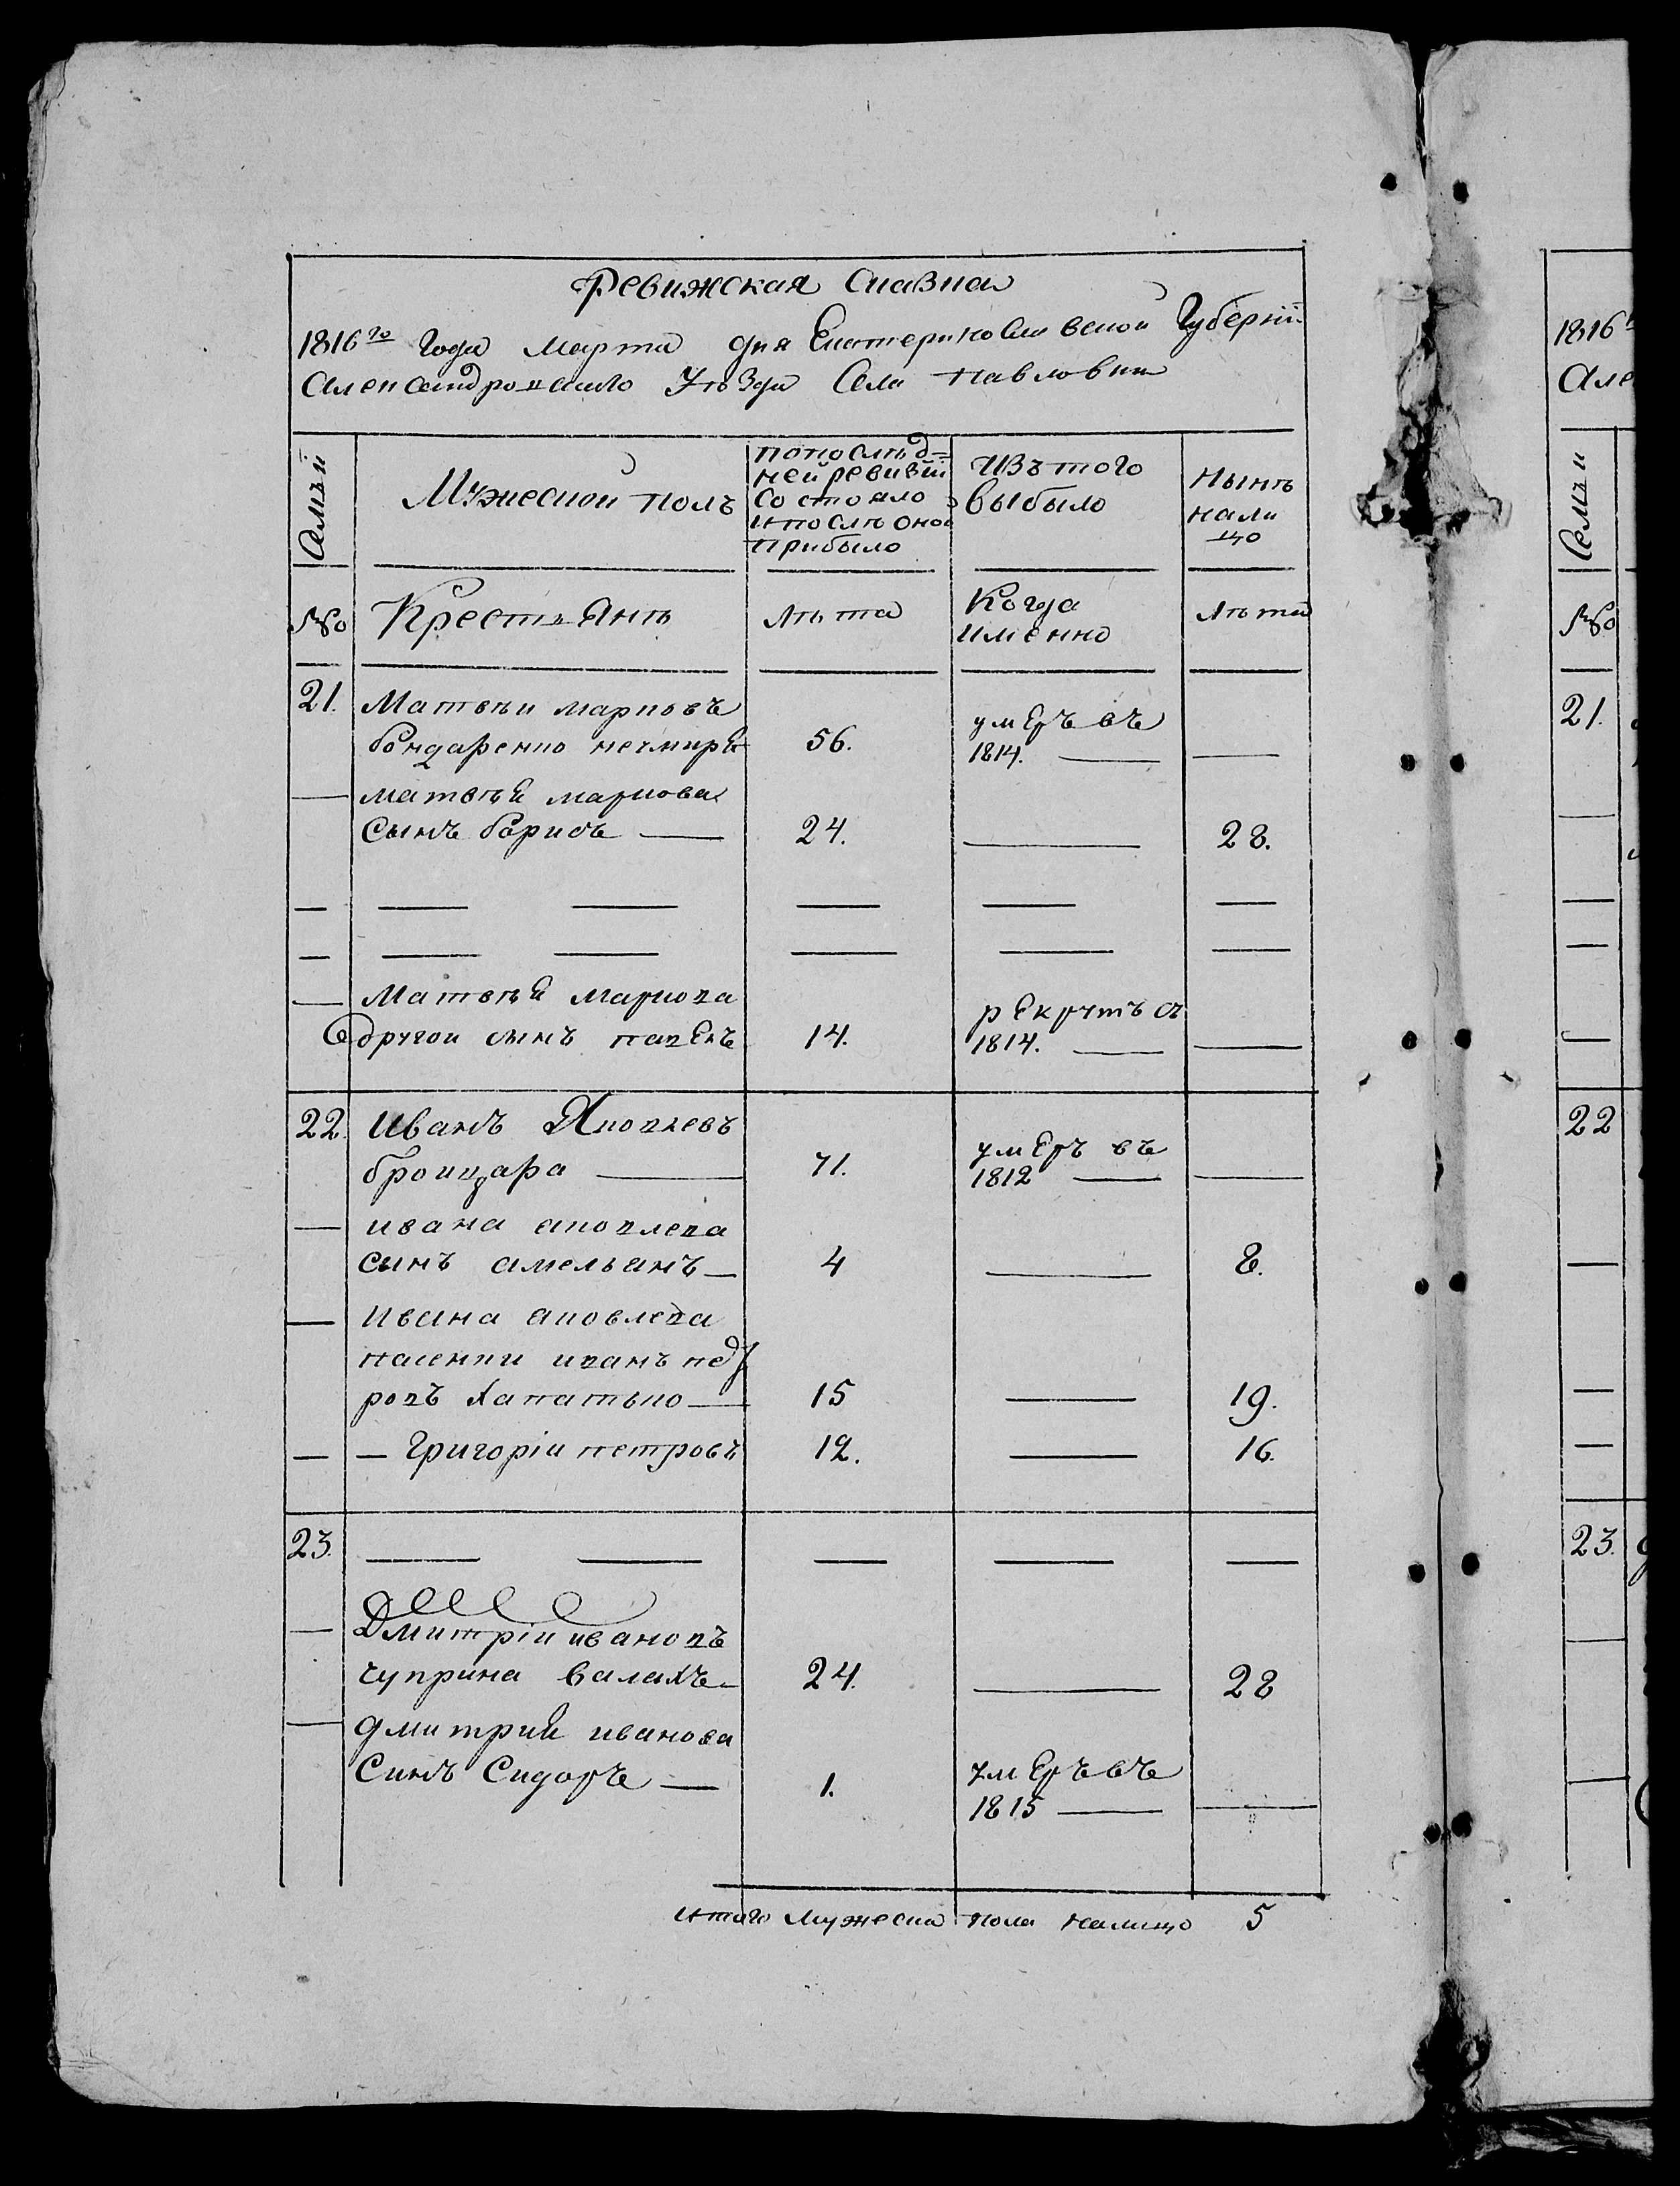 Ревижская Сказка
1816го Года Марта дня Екатеринославской Губернїи
Александровскаго Уѣзда Села Павловки
Семьи
Мужеской полъ
попослѣд=
ней ревизїи
состояло
и после оной
прибыло
Изътого
выбыло
Нынѣ
нали
цо
№о
Крестьянѣ
Лѣта
Когда
имѣнно
Лѣта
21.
Матвѣи марковъ
бондаренко
56.
умеръ въ
1814.
матвѣя маркова
Сынъ борисъ
24.
28.
Матвѣя маркова
другои сынъ павелъ
14.
рекрутъ въ
1814.
22.
Иванъ Яковлевъ
71.
умеръ въ
1812
ивана яковлева
сынъ амельянъ
4
8.
ивана яковлева
пасенки иванъ пет
ровъ
15
19.
Григорїи петровъ
12.
16.
23.
Дмитрїи ивановъ
чуприна валахъ
24.
28
дмитрия иванова
Синъ Сидоръ
1.
умеръ въ
1815
итаго мужеска пола налицо 5
1816
Але
Семьи
№о
21.
22
23.